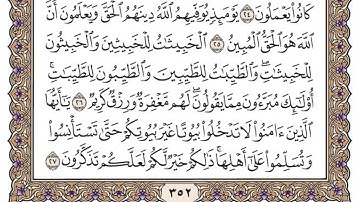 كَانُوا۟ يَعْمَلُونَ ٢٤ يَوْمَئِذٍ يُوَفِّيهِمُ ٱللَّهُ دِينَهُمُ ٱلْحَقَّ وَيَعْلَمُونَ أَنَّ
ٱللَّهَ هُوَ ٱلْحَقُّ ٱلْمُبِينُ ٢٥ ٱلْخَبِيثَٰتُ لِلْخَبِيثِينَ وَٱلْخَبِيثُونَ
لِلْخَبِيثَٰتِ ۖ وَٱلطَّيِّبَٰتُ لِلطَّيِّبِينَ وَٱلطَّيِّبُونَ لِلطَّيِّبَٰتِ ۚ
أُو۟لَٰٓئِكَ مُبَرَّءُونَ مِمَّا يَقُولُونَ ۖ لَهُم مَّغْفِرَةٌ وَرِزْقٌ كَرِيمٌ ٢٦ يَٰٓأَيُّهَا
ٱلَّذِينَ ءَامَنُوا۟ لَا تَدْخُلُوا۟ بُيُوتًا غَيْرَ بُيُوتِكُمْ حَتَّىٰ تَسْتَأْنِسُوا۟
وَتُسَلِّمُوا۟ عَلَىٰٓ أَهْلِهَا ۚ ذَٰلِكُمْ خَيْرٌ لَّكُمْ لَعَلَّكُمْ تَذَكَّرُونَ ٢٧
٣٥٢